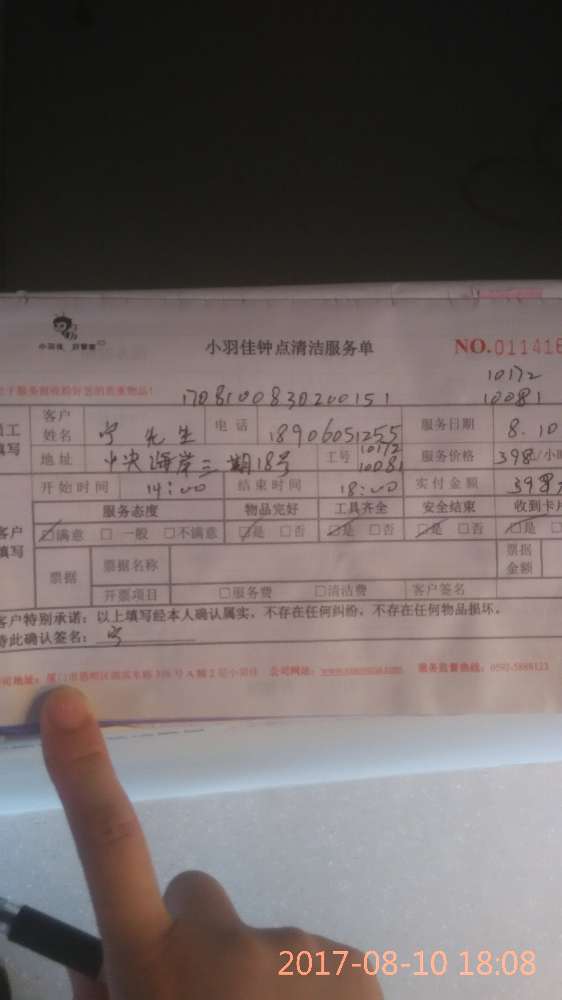 小羽佳 好管家
小羽佳钟点清洁服务单
NO.011416
1708100830200151
10172
10081
客户姓名 宁先生 电话 18906051255 服务日期 8.10
地址 中央海岸三期18号 工号 10172 10081 服务价格 398/小
开始时间 14:00 结束时间 18:00 实付金额 398
服务态度 物品完好 工具齐全 安全结束 收到卡
客户填写 ☑满意 □一般 □不满意 ☑是 □否 ☑是 □否 ☑是 □否
票据 票据名称 票据金额
开票项目 □服务费 □清洁费 客户签名
客户特别承诺：以上填写经本人确认属实，不存在任何纠纷，不存在任何物品损坏。
特此确认签名：宁
公司地址：厦门市思明区 A 2 小羽佳 公司网址： 服务监督热线：0592-5888123
2017-08-10 18:08